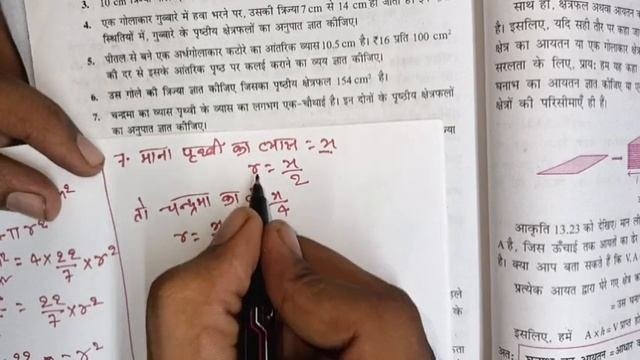 3. 10 cm
4. एक गोलाकार गुब्बारे में हवा भरने पर, उसकी त्रिज्या 7 cm से 14 cm हो जाती
स्थितियों में, गुब्बारे के पृष्ठीय क्षेत्रफलों का अनुपात ज्ञात कीजिए।
5. पीतल से बने एक अर्धगोलाकार कटोरे का आंतरिक व्यास 10.5 cm है। ₹16 प्रति 100 cm²
की दर से इसके आंतरिक पृष्ठ पर कलई कराने का व्यय ज्ञात कीजिए।
6. उस गोले की त्रिज्या ज्ञात कीजिए जिसका पृष्ठीय क्षेत्रफल 154 cm² है।
7. चन्द्रमा का व्यास पृथ्वी के व्यास का लगभग एक-चौथाई है। इन दोनों के पृष्ठीय क्षेत्रफलों
का अनुपात ज्ञात कीजिए।
7. माना पृथ्वी का व्यास = x
r = x/2
तो चन्द्रमा का x/4
r =
πr²
= 4 × 22/7 × r²
= 22/7 × r²
साथ ही, क्षेत्रफल अथवा आयतन
है। इसलिए, यदि सही तौर पर कहा जा
क्षेत्र का आयतन या एक गोलाकार
सरलता के लिए, प्रायः हम यह कहा
घनाभ का आयतन ज्ञात कीजिए या
क्षेत्रों की परिसीमाएँ ही हैं।
आकृति 13.23 को देखिए। मान
A है, जिस ऊँचाई तक आयतों का ढेर
है। क्या आप बता सकते हैं कि V, A
प्रत्येक आयत द्वारा घेरे गए क्षेत्र
इसलिए, हमें A × h = V प्राप्त